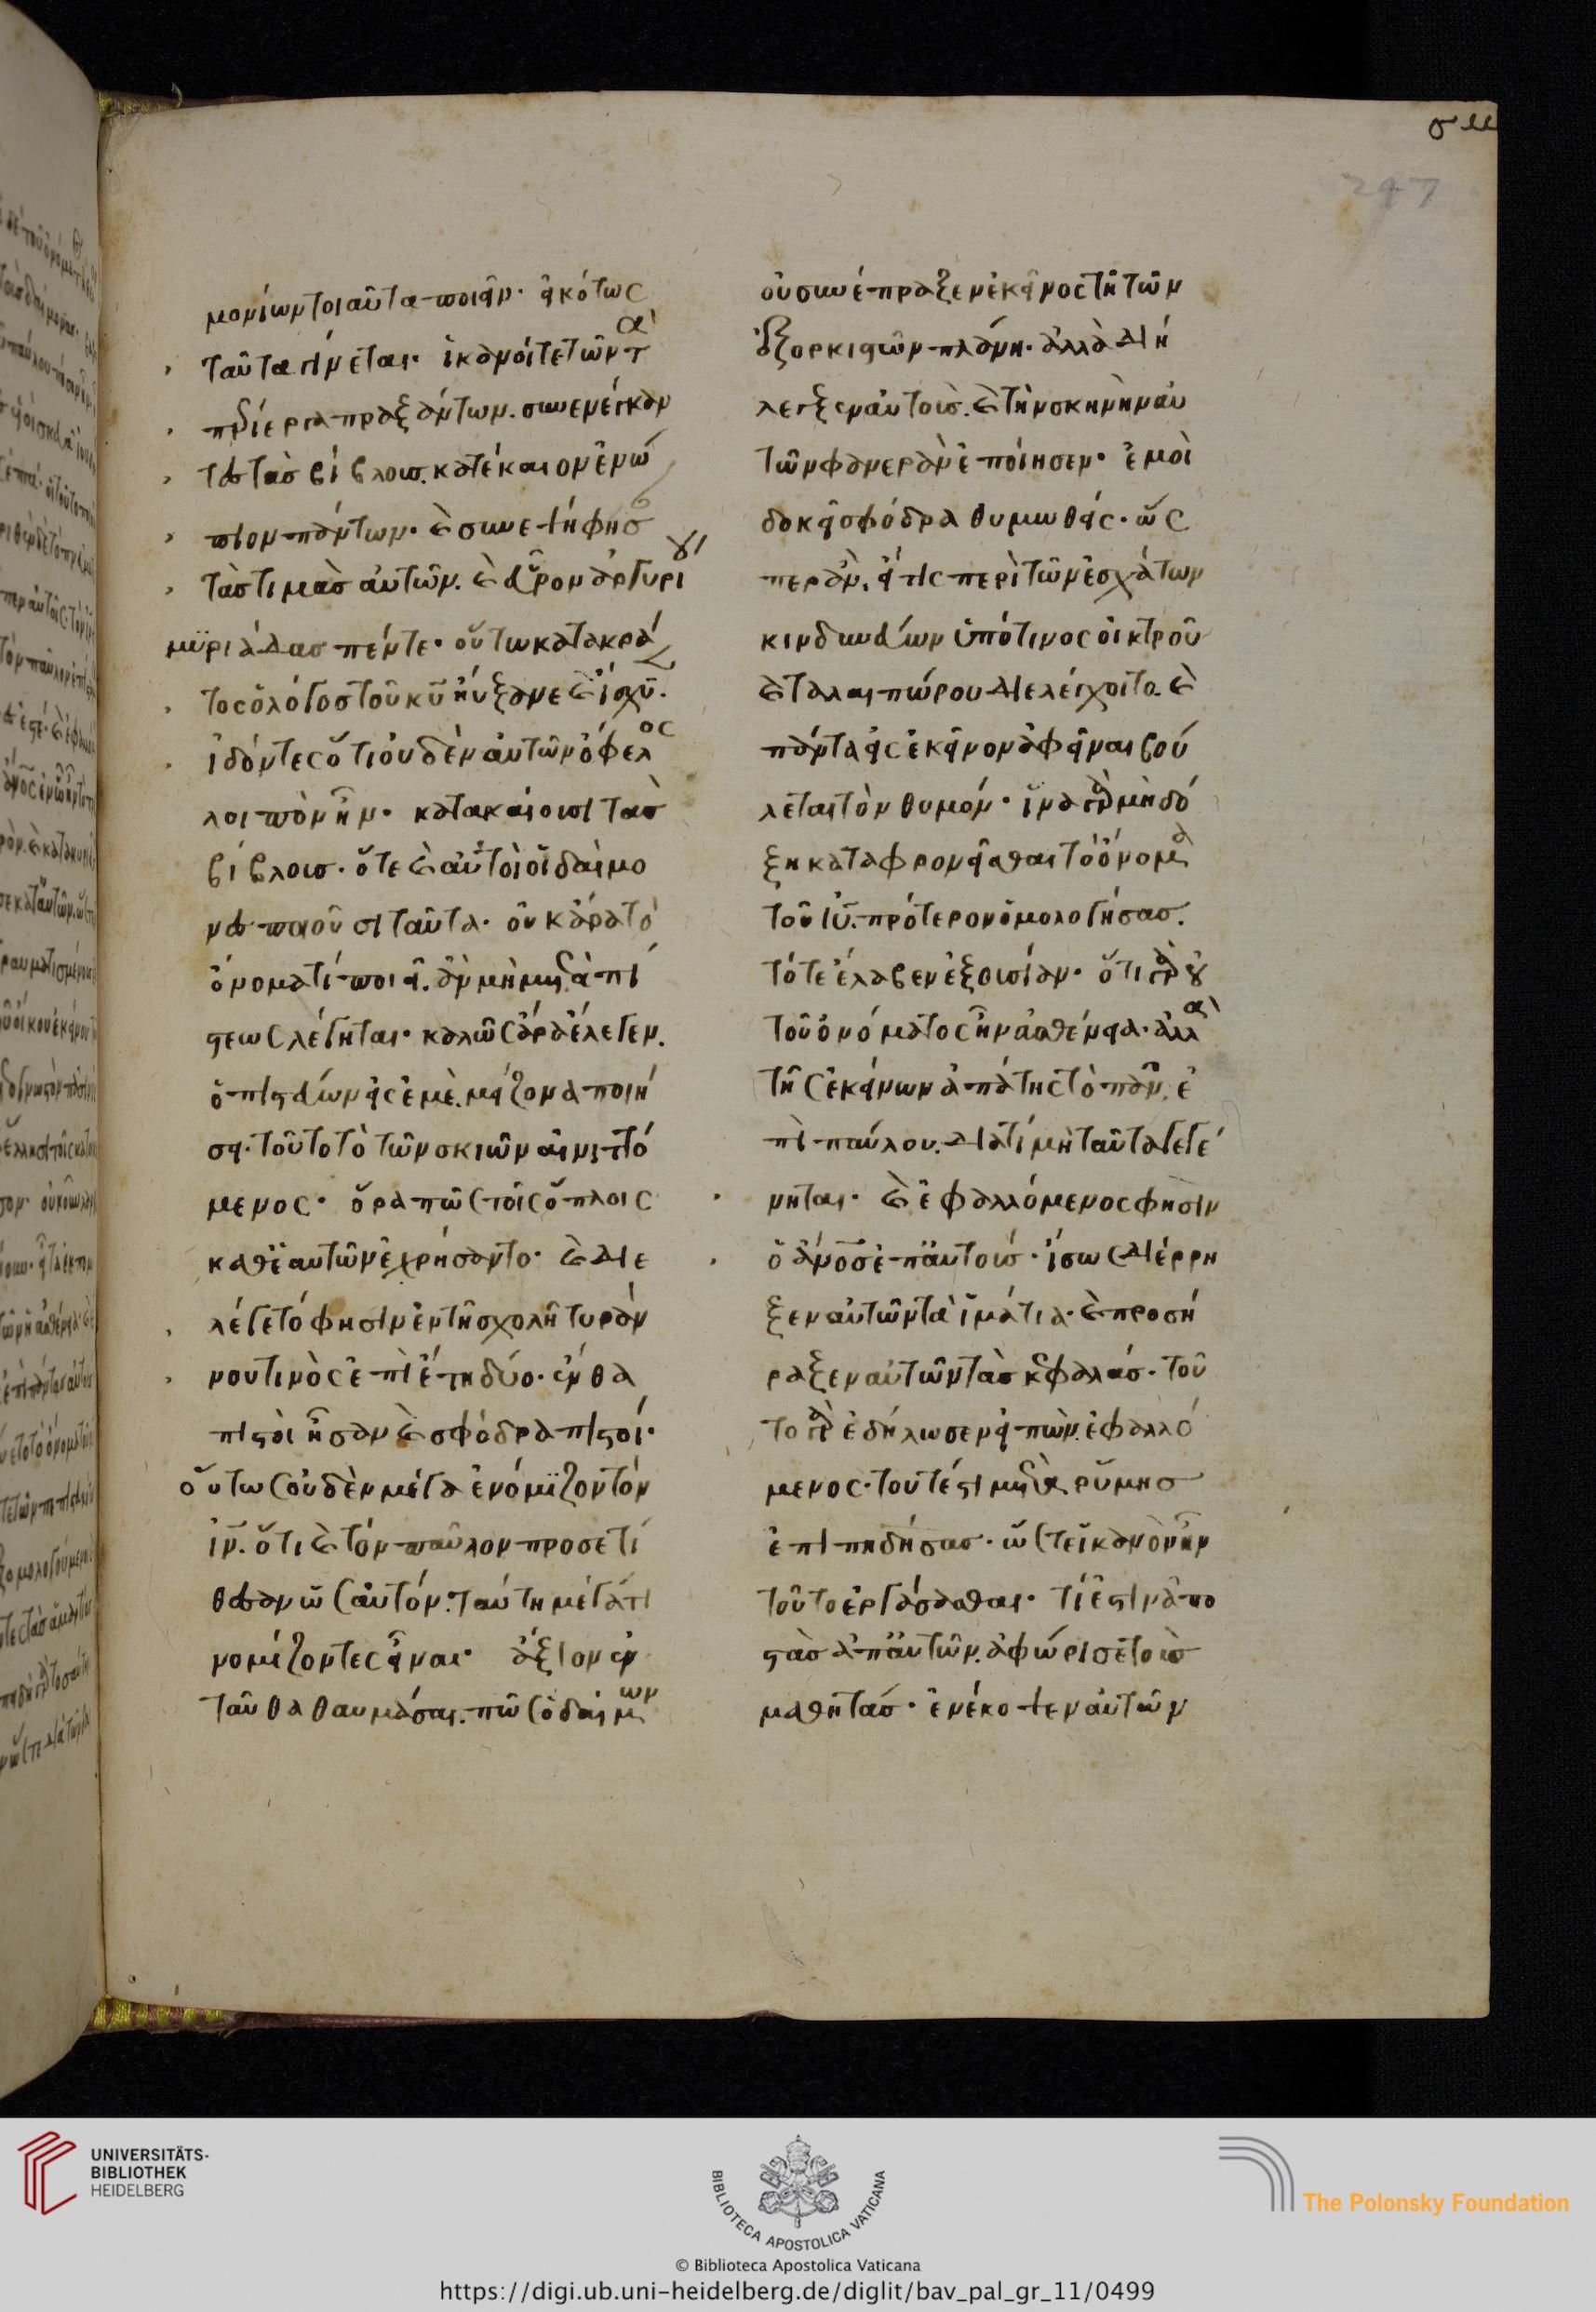 σμ
247
μονίων τοιαῦτα ποιεῖν· εἰκότως
ταῦτα γίνεται· ἱκανοί τε τῶν τὰ
περίεργα πραξάντων. συνενέγκαν
τες τὰς βίβλους. κατέκαιον ἐνώ
πιον πάντων· καὶ συνεψήφησαν
τὰς τιμὰς αὐτῶν. καὶ εὗρον ἀργυρίου
μυριάδας πέντε· οὕτω κατακρά
τος ὁ λόγος τοῦ κυ ηὔξανε καὶ ἴσχυ.
ἰδόντες ὅτι οὐδὲν αὐτῶν ὄφελος
λοιπὸν ἦν· κατακαίουσι τὰς
βίβλους· ὅτε καὶ αὐτοὶ οἱ δαίμο
νες ποιοῦσι ταῦτα· οὐκ ἄρα τὸ
ὄνομά τι ποιεῖ. ἂν μὴ μετὰ πί
στεως λέγηται· καλῶς ἄρα ἔλεγεν.
ὁ πιστεύων εἰς ἐμὲ. μείζονα ποιή
σει· τοῦτο τὸ τῶν σκιῶν αἰνιττό
μενος· ὅρα πῶς τοῖς ὅπλοις
καθ' ἑαυτῶν ἐχρήσαντο· καὶ διε
λέγετό φησιν ἐν τῇ σχολῇ τυράν
νου τινὸς ἐπὶ ἔτη δύο· ἔνθα
πιστοὶ ἦσαν καὶ σφόδρα πιστοί·
οὕτως οὐδὲν μέγα ἐνόμιζον τὸν
ιν. ὅτι καὶ τὸν παῦλον προσετί
θεσαν ὡς αὐτόν· ταύτη μέγα τι
νομίζοντες εἶναι· ἄξιον ἐν
ταῦθα θαυμάσαι. πῶς ὁ δαίμων
οὐ συνέπραξεν ἐκεῖνος τῇ τῶν
ἐξορκιστῶν πλάνη· ἀλλὰ διή
λεγξεν αὐτοὺς. καὶ τὴν σκηνὴν αὐ
τῶν φανερὰν ἐποίησεν· ἐμοὶ
δοκεῖ σφόδρα θυμωθείς· ὥς
περ ἂν. εἴ τις περὶ τῶν ἐσχάτων
κινδυνεύων ὑπό τινος οἰκτροῦ
καὶ ταλαιπώρου διελέγχοιτο. καὶ
πάντα εἰς ἐκεῖνον ἀφεῖναι βού
λεται τὸν θυμόν· ἵνα γὰρ μὴ δό
ξη καταφρονεῖσθαι τὸ ὄνομα
τοῦ ιυ. πρότερον ὁμολογήσας.
τότε ἔλαβεν ἐξουσίαν· ὅτι γὰρ οὐ
τοῦ ὀνόματος ἦν ἀσθένεια· ἀλλὰ
τῆς ἐκείνων ἀπάτης τὸ πᾶν. ἐ
πὶ παύλου. διατί μὴ ταῦτα γεγέ
νηται· καὶ ἐφαλλόμενος φησιν
ὁ ἄνος ἐπ' αὐτοὺς· ἴσως διέρρη
ξεν αὐτῶν τὰ ἱμάτια· καὶ προσή
ραξεν αὐτῶν τὰς κεφαλάς· τοῦ
το γὰρ ἐδήλωσεν εἰπών. ἐφαλλό
μενος· τουτέστι μετὰ ῥύμης
ἐπιπηδήσας· ὥστε ἱκανὸν ἦν
τοῦτο ἐργάσασθαι· τί ἐστιν ἀπο
στὰς ἀπ' αὐτῶν. ἀφώρισε τοὺς
μαθητάς· ἐνέκοψεν αὐτῶν
UNIVERSITÄTS-
BIBLIOTHEK
HEIDELBERG
BIBLIOTECA APOSTOLICA VATICANA
© Biblioteca Apostolica Vaticana
The Polonsky Foundation
https://digi.ub.uni-heidelberg.de/diglit/bav_pal_gr_11/0499